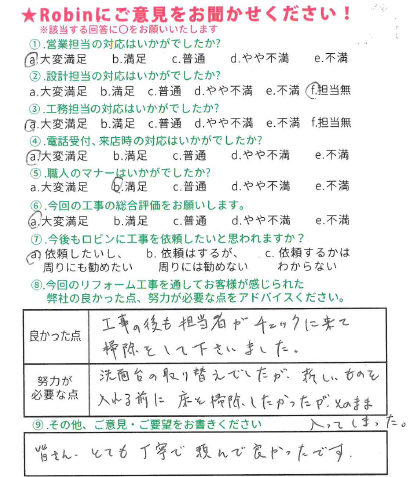 ★Robinにご意見をお聞かせください！
※該当する回答に〇をお願いいたします
①.営業担当の対応はいかがでしたか?
a.大変満足 b.満足 c.普通 d.やや不満 e.不満
②.設計担当の対応はいかがでしたか?
a.大変満足 b.満足 c.普通 d.やや不満 e.不満 f.担当無
③.工務担当の対応はいかがでしたか?
a.大変満足 b.満足 c.普通 d.やや不満 e.不満 f.担当無
④.電話受付、来店時の対応はいかがでしたか?
a.大変満足 b.満足 c.普通 d.やや不満 e.不満
⑤.職人のマナーはいかがでしたか?
a.大変満足 b.満足 c.普通 d.やや不満 e.不満
⑥.今回の工事の総合評価をお願いします。
a.大変満足 b.満足 c.普通 d.やや不満 e.不満
⑦.今後もロビンに工事を依頼したいと思われますか？
a.依頼したいし、 b.依頼はするが、 c.依頼するかは
周りにも勧めたい 周りには勧めない わからない
⑧.今回のリフォーム工事を通してお客様が感じられた
弊社の良かった点、努力が必要な点をアドバイスください。
良かった点
工事の後も担当者がチェックに来て
掃除をして下さいました。
努力が
必要な点
洗面台の取り替えでしたが、新しいものを
入れる前に床を掃除したかったが、そのまま
入ってしまった。
⑨.その他、ご意見・ご要望をお書きください
皆さん、とても丁寧で頼んで良かったです.